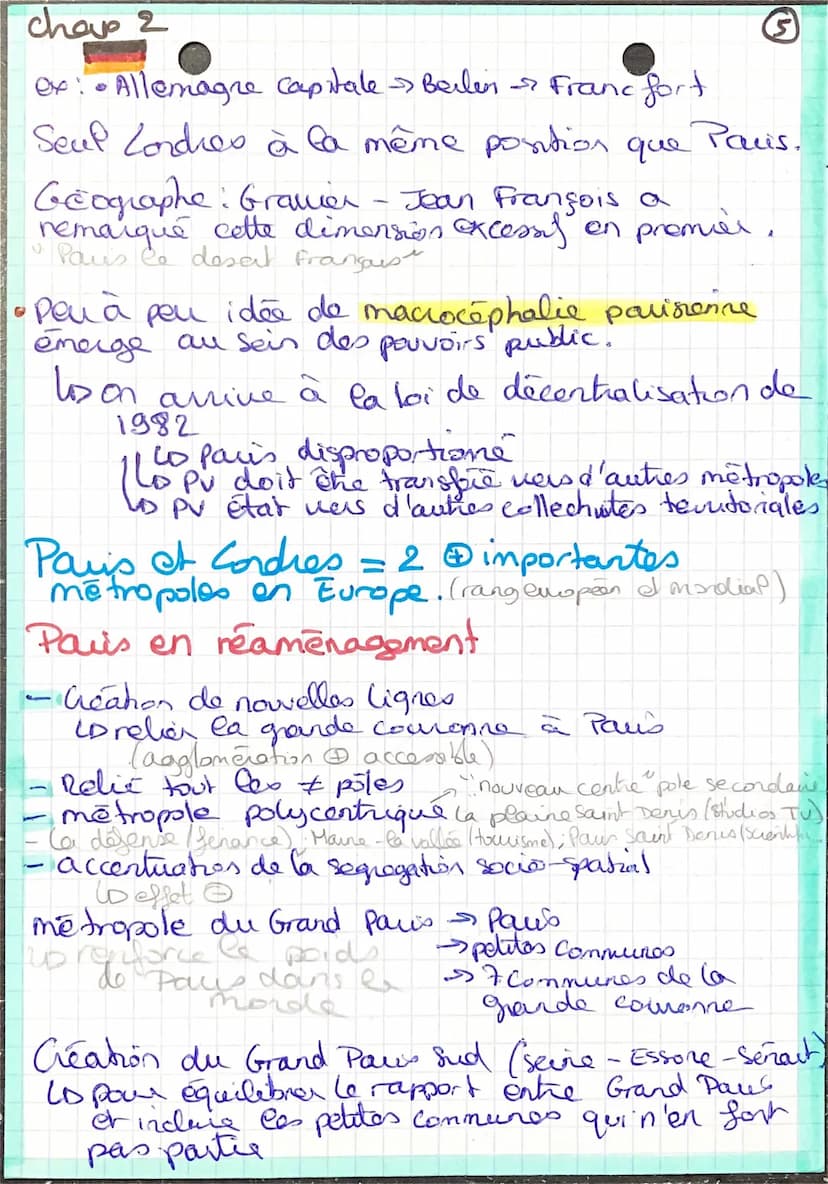 chap 2
5
ex : • Allemagne capitale → Berlin → Francfort
Seul Londres à la même position que Paris.
Géographe : Gravier - Jean François a
remarqué cette dimension excessif en premier.
"Paris le desert Français"
• peu à peu idée de macrocéphalie parisienne
émerge au sein des pouvoirs public.
↳ on arrive à la loi de décentralisation de
1982
↳ Paris disproportionné
↳ PV doit être transféré vers d'autres métropoles
↳ PV état vers d'autres collectivités territoriales
Paris et Londres = 2 ⊕ importantes
métropoles en Europe. (rang européen et mondial)
Paris en réaménagement
- Création de nouvelles lignes
↳ relier la grande couronne à Paris
(agglomération ⊕ accessible)
- Relié tout les ≠ pôles → "nouveau centre" pole secondaire
- métropole polycentrique la plaine Saint Denis (studios TV)
- la défense (finance), Marne-la vallée (tourisme), Paris Saint Denis
- accentuation de la ségregation socio-spatial
↳ effet ⊖
métropole du Grand Paris → Paris
↳ renforce le poids → petites communes
de Paris dans le → 7 communes de la
monde grande couronne
Création du Grand Paris Sud (seine - Essone - Sénart)
↳ pour équilibrer le rapport entre Grand Paris
et inclure les petites communes qui n'en font
pas partie